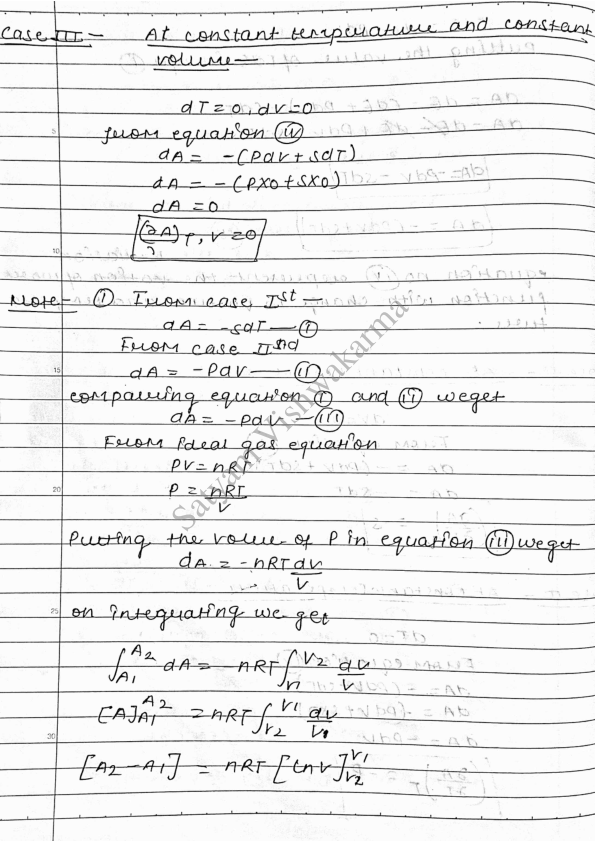 Case III - At constant temperature and constant
volume -
dT = 0, dV = 0
from equation (iv)
dA = -(PdV + SdT)
dA = -(PX0 + SX0)
dA = 0
(∂A) T, V = 0
Note - (i) From case Ist -
dA = -SdT — (i)
From case IInd
dA = -PdV — (ii)
comparing equation (i) and (ii) we get
dA = -PdV — (iii)
From Ideal gas equation
PV = nRT
P = nRT/V
Putting the value of P in equation (iii) we get
dA = -nRT dV/V
on integrating we get
∫A1^A2 dA = -nRT ∫V1^V2 dV/V
[A]A1^A2 = nRT ∫V2^V1 dV/V
[A2 - A1] = nRT [lnV]V2^V1
Satyam Vishwakarma